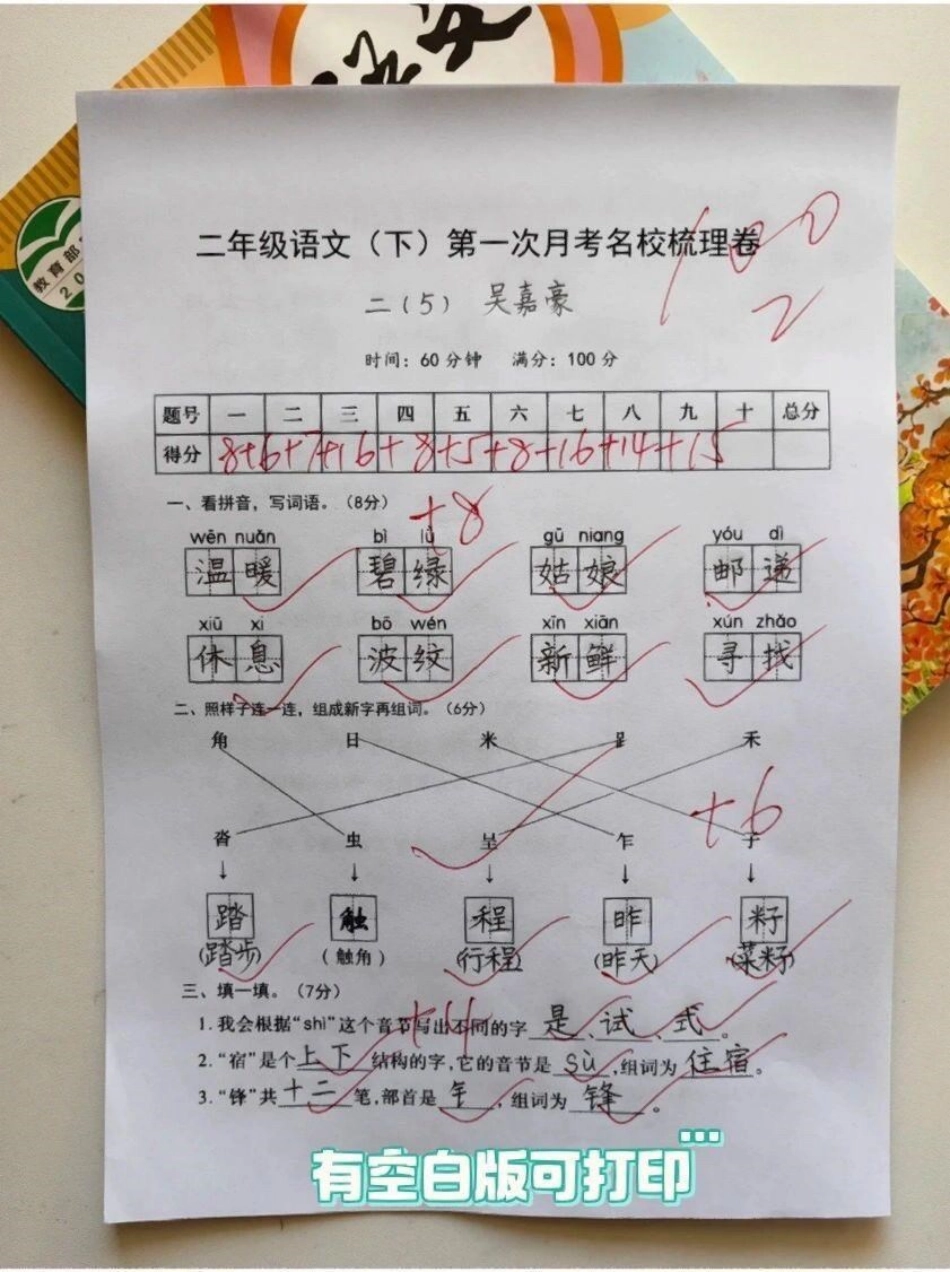 教育部
20
二年级语文（下）第一次月考名校梳理卷
100
2
二（5） 吴嘉豪
时间：60分钟 满分：100分
题号 一 二 三 四 五 六 七 八 九 十 总分
得分 8+6+7+16+8+5+8+16+14+15
一、看拼音，写词语。（8分） +8
wēn nuǎn bì lǜ gū niang yóu dì
温暖 碧绿 姑娘 邮递
xiū xi bō wén xīn xiān xún zhǎo
休息 波纹 新鲜 寻找
二、照样子连一连，组成新字再组词。（6分）
角 日 米 𧾷 禾
+6
沓 虫 呈 乍 子
↓ ↓ ↓ ↓ ↓
踏 触 程 昨 籽
（踏步） （触角） （行程） （昨天） （菜籽）
三、填一填。（7分）
1.我会根据“shì”这个音节写出不同的字 是、试、式。
2.“宿”是个上下结构的字，它的音节是 sù，组词为 住宿。
3.“锋”共十二笔，部首是 钅，组词为 锋。
有空白版可打印...